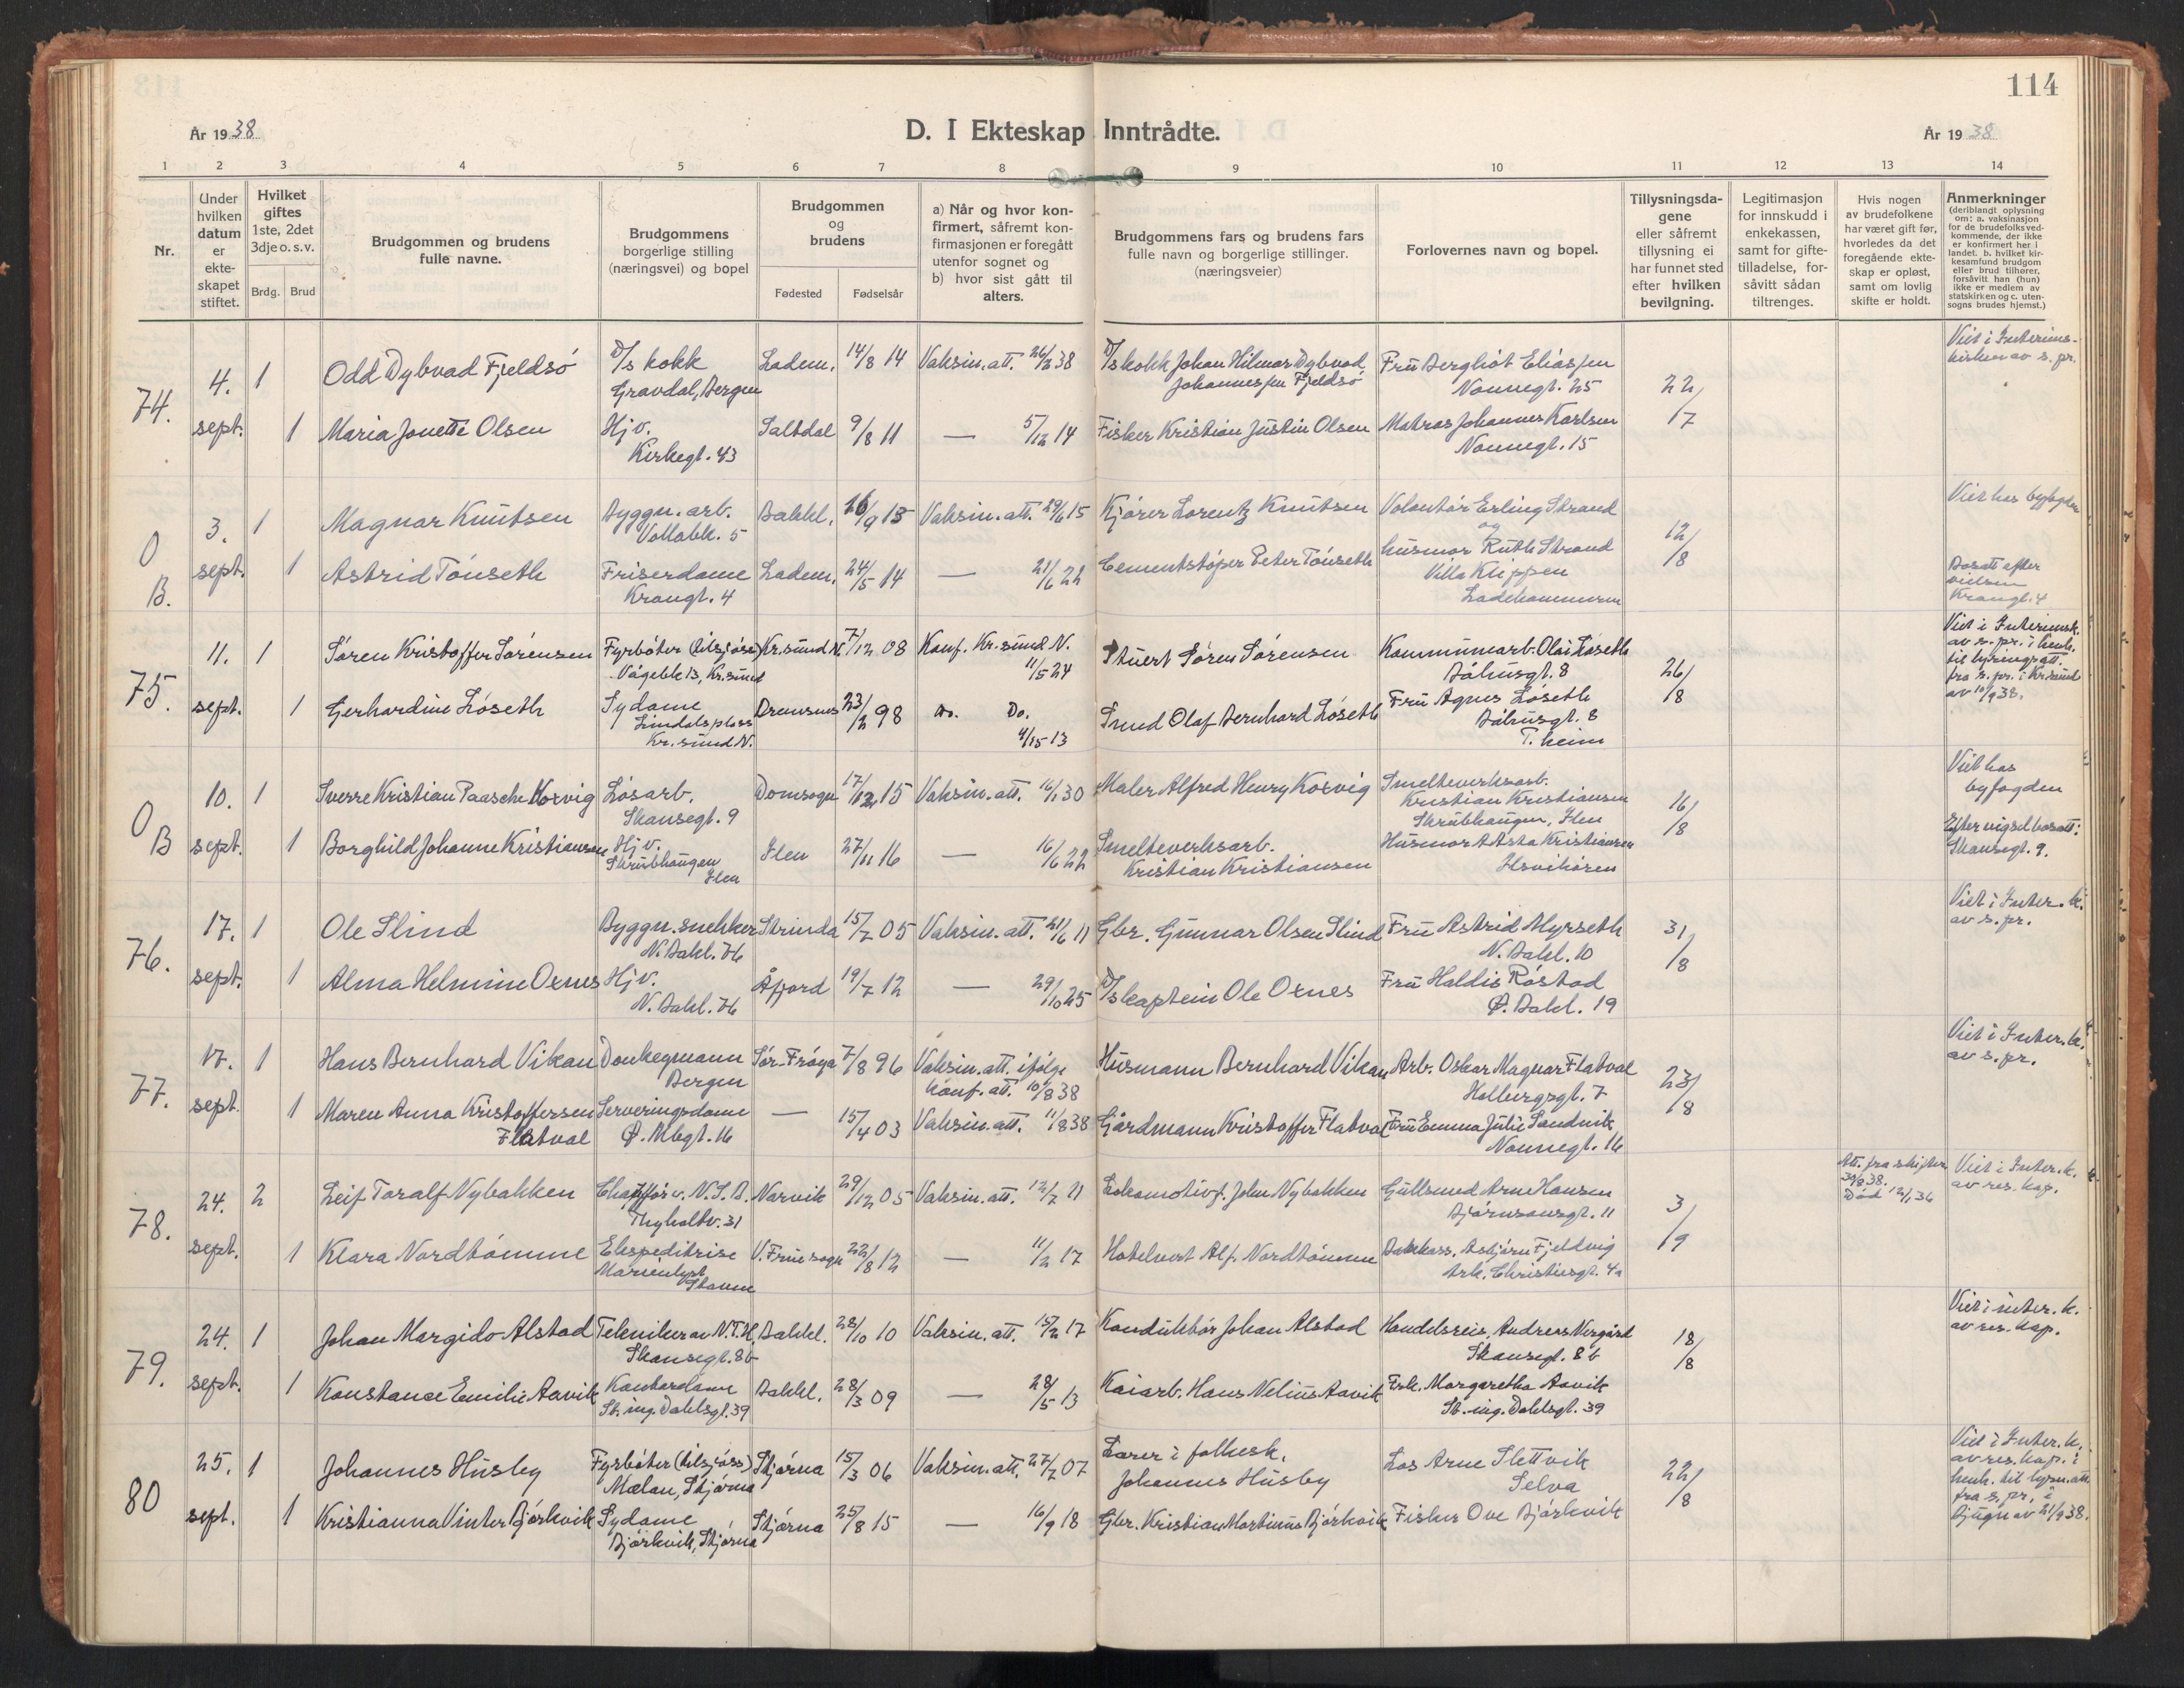 114
År 1938
D. I Ekteskap Inntrådte.
År 1938
1 2 3 4 5 6 7 8 9 10 11 12 13 14
Nr.
Under hvilken datum er ekteskapet stiftet.
Hvilket giftes 1ste, 2det 3dje o. s. v.
Brdg. Brud
Brudgommen og brudens fulle navne.
Brudgommens borgerlige stilling (næringsvei) og bopel
Brudgommen og brudens
Fødested Fødselsår
a) Når og hvor konfirmert, såfremt konfirmasjonen er foregått utenfor sognet og b) hvor sist gått til alters.
Brudgommens fars og brudens fars fulle navn og borgerlige stillinger. (næringsveier)
Forlovernes navn og bopel.
Tillysningsdagene eller såfremt tillysning ei har funnet sted efter hvilken bevilgning.
Legitimasjon for innskudd i enkekassen, samt for giftetilladelse, forsåvitt sådan tiltrenges.
Hvis nogen av brudefolkene har været gift før, hvorledes da det foregående ekteskap er opløst, samt om lovlig skifte er holdt.
Anmerkninger (deriblandt oplysning om: a. vaksinasjon for de brudefolks vedkommende, der ikke er konfirmert her i landet. b. hvilket kirkesamfund brudgom eller brud tilhører, forsåvitt han (hun) ikke er medlem av statskirken og c. utensogns brudes hjemst.)
74. 4. sept. 1 Odd Dybvad Fjeldsø D/s kokk Gravdal, Bergen Ladem. 14/8 14 Vaksin. att. 26/2 38 D/s kokk Johan Hilmar Dybvad Johannessen Fjeldsø Fru Bergliot Eliassen Nonnegt. 25 22/17 Viet i Interims-kirken av s. pr.
1 Maria Jonette Olsen Hjv. Kirkegt. 43 Saltdal 9/8 11 — 5/12 14 Fisker Kristian Justin Olsen Matros Johannes Karlsen Nonnegt. 15
0 B. 3. sept. 1 Magnar Knutsen Byggn. arb. Vollabk. 5 Bakkl. 16/9 13 Vaksin. att. 29/6 15 Kjører Lorentz Knutsen Volontør Erling Strand og 12/8 Viet hos byfogden
1 Astrid Tønseth Friserdame Krongt. 4 Ladem. 24/5 14 — 21/6 22 Cementstøper Peter Tønseth husmor Ruth Strand Villa Klippen Ladehammeren Bosatt efter vielsen Krongt. 4
75. 11. sept. 1 Søren Kristoffer Sørensen Fyrbøter (tilsjøss) Vågebk 13, Kr.sund Kr.sund N. 7/12 08 Konf. Kr.sund N. 11/5 24 Stuert Søren Sørensen Kommunearb. Olai Løseth Båhusgt. 8 26/8 Viet i Interimsk. av s. pr. i henh. til lysningsatt. fra s. pr. i Kr.sund av 10/9 38.
1 Gerhardine Løseth Sydame Lindals plass Kr.sund N. Bremsnes 23/2 98 Do. Do. 4/15 13 Smed Olaf Bernhard Løseth Fru Agnes Løseth Båhusgt. 8 T.heim
0 B 10. sept. 1 Sverre Kristian Paasche Korvig Løsarb. Skansegt. 9 Domsogn 17/12 15 Vaksin. att. 16/1 30 Maler Alfred Henry Korvig Smelteverksarb. Kristian Kristiansen Skrubhaugen, Ilen 16/8 Viet hos byfogden
1 Borghild Johanne Kristiansen Hjv. Skrubhaugen Ilen Ilen 27/11 16 — 16/6 22 Smelteverksarb. Kristian Kristiansen Husmor Asta Kristiansen Ilsvikøren Efter vigsel bosatt: Skansegt. 9.
76. 17. sept. 1 Ole Slind Byggn. snekker N. Bakl. 76 Strinda 15/7 05 Vaksin. att. 21/6 11 Gbr. Gunnar Olsen Slind Fru Astrid Myrseth N. Bakl. 10 31/8 Viet i Inter. k. av s. pr.
1 Alma Helmine Oxnes Hjv. N. Bakl. 76 Åfjord 19/7 12 — 29/10 25 D/s kaptein Ole Oxnes Fru Haldis Røstad Ø. Bakl. 19
77. 17. sept. 1 Hans Bernhard Vikan Donkeymann Bergen Sør-Frøya 7/8 96 Vaksin. att. ifølge konf. att. 10/8 38 Husmann Bernhard Vikan Arb. Oskar Magnar Flatval Holbergsgt. 7 23/8 Viet i Inter. k. av s. pr.
1 Maren Anna Kristoffersen Flatval Serveringsdame Ø. Mlegt. 16 — 15/4 03 Vaksin. att. 11/8 38 Gårdmann Kristoffer Flatval Fru Emma Julie Sandvik Nonnegt. 16
78. 24. sept. 2 Leif Toralf Nybakken Chaffør v. N.S.B. Thyholtv. 31 Narvik 29/12 05 Vaksin. att. 12/7 11 Lokomotivf. John Nybakken Gullsmed Arne Hansen Bjørnsonsgt. 11 3/9 Att. fra skifter. 30/8 38. Død 12/1 36 Viet i Inter. k. av res. kap.
1 Klara Nordtømme Ekspeditrise Marienlyst Stavne V. Frue sogn 22/8 12 — 11/2 17 Hotelvert Alf Nordtømme Bankkass. Asbjørn Fjeldvig Ark. Christiesgt. 4a
79. 24. sept. 1 Johan Margido Alstad Tekniker av N.T.H. Skansegt. 8b Bakkl. 28/10 10 Vaksin. att. 15/2 17 Konduktør Johan Alstad Handelsreis. Andreas Vergård Skansegt. 8b 18/8 Viet i inter. k. av res. kap.
1 Konstance Emilie Aavik Kontordame St. ing. Dahlsgt. 39 Bakkl. 28/3 09 — 28/5 13 Kaiarb. Hans Nelius Aavik Frk. Margaretha Aavik St. ing. Dahlsgt. 39
80 25. sept. 1 Johannes Husby Fyrbøter (tilsjøss) Mælan, Stjørna Stjørna 15/3 06 Vaksin. att. 27/7 07 Lærer i folkesk. Johannes Husby Los Arne Slettvik Selva 22/8 Viet i Inter. k. av res. kap. i henh. til lysn. att. fra s. pr. i Bjugn av 21/9 38.
1 Kristianna Vinter Bjørkvik Sydame Bjørkvik, Stjørna Stjørna 25/8 15 — 16/9 18 Gbr. Kristian Martinus Bjørkvik Fisker Ove Bjørkvik